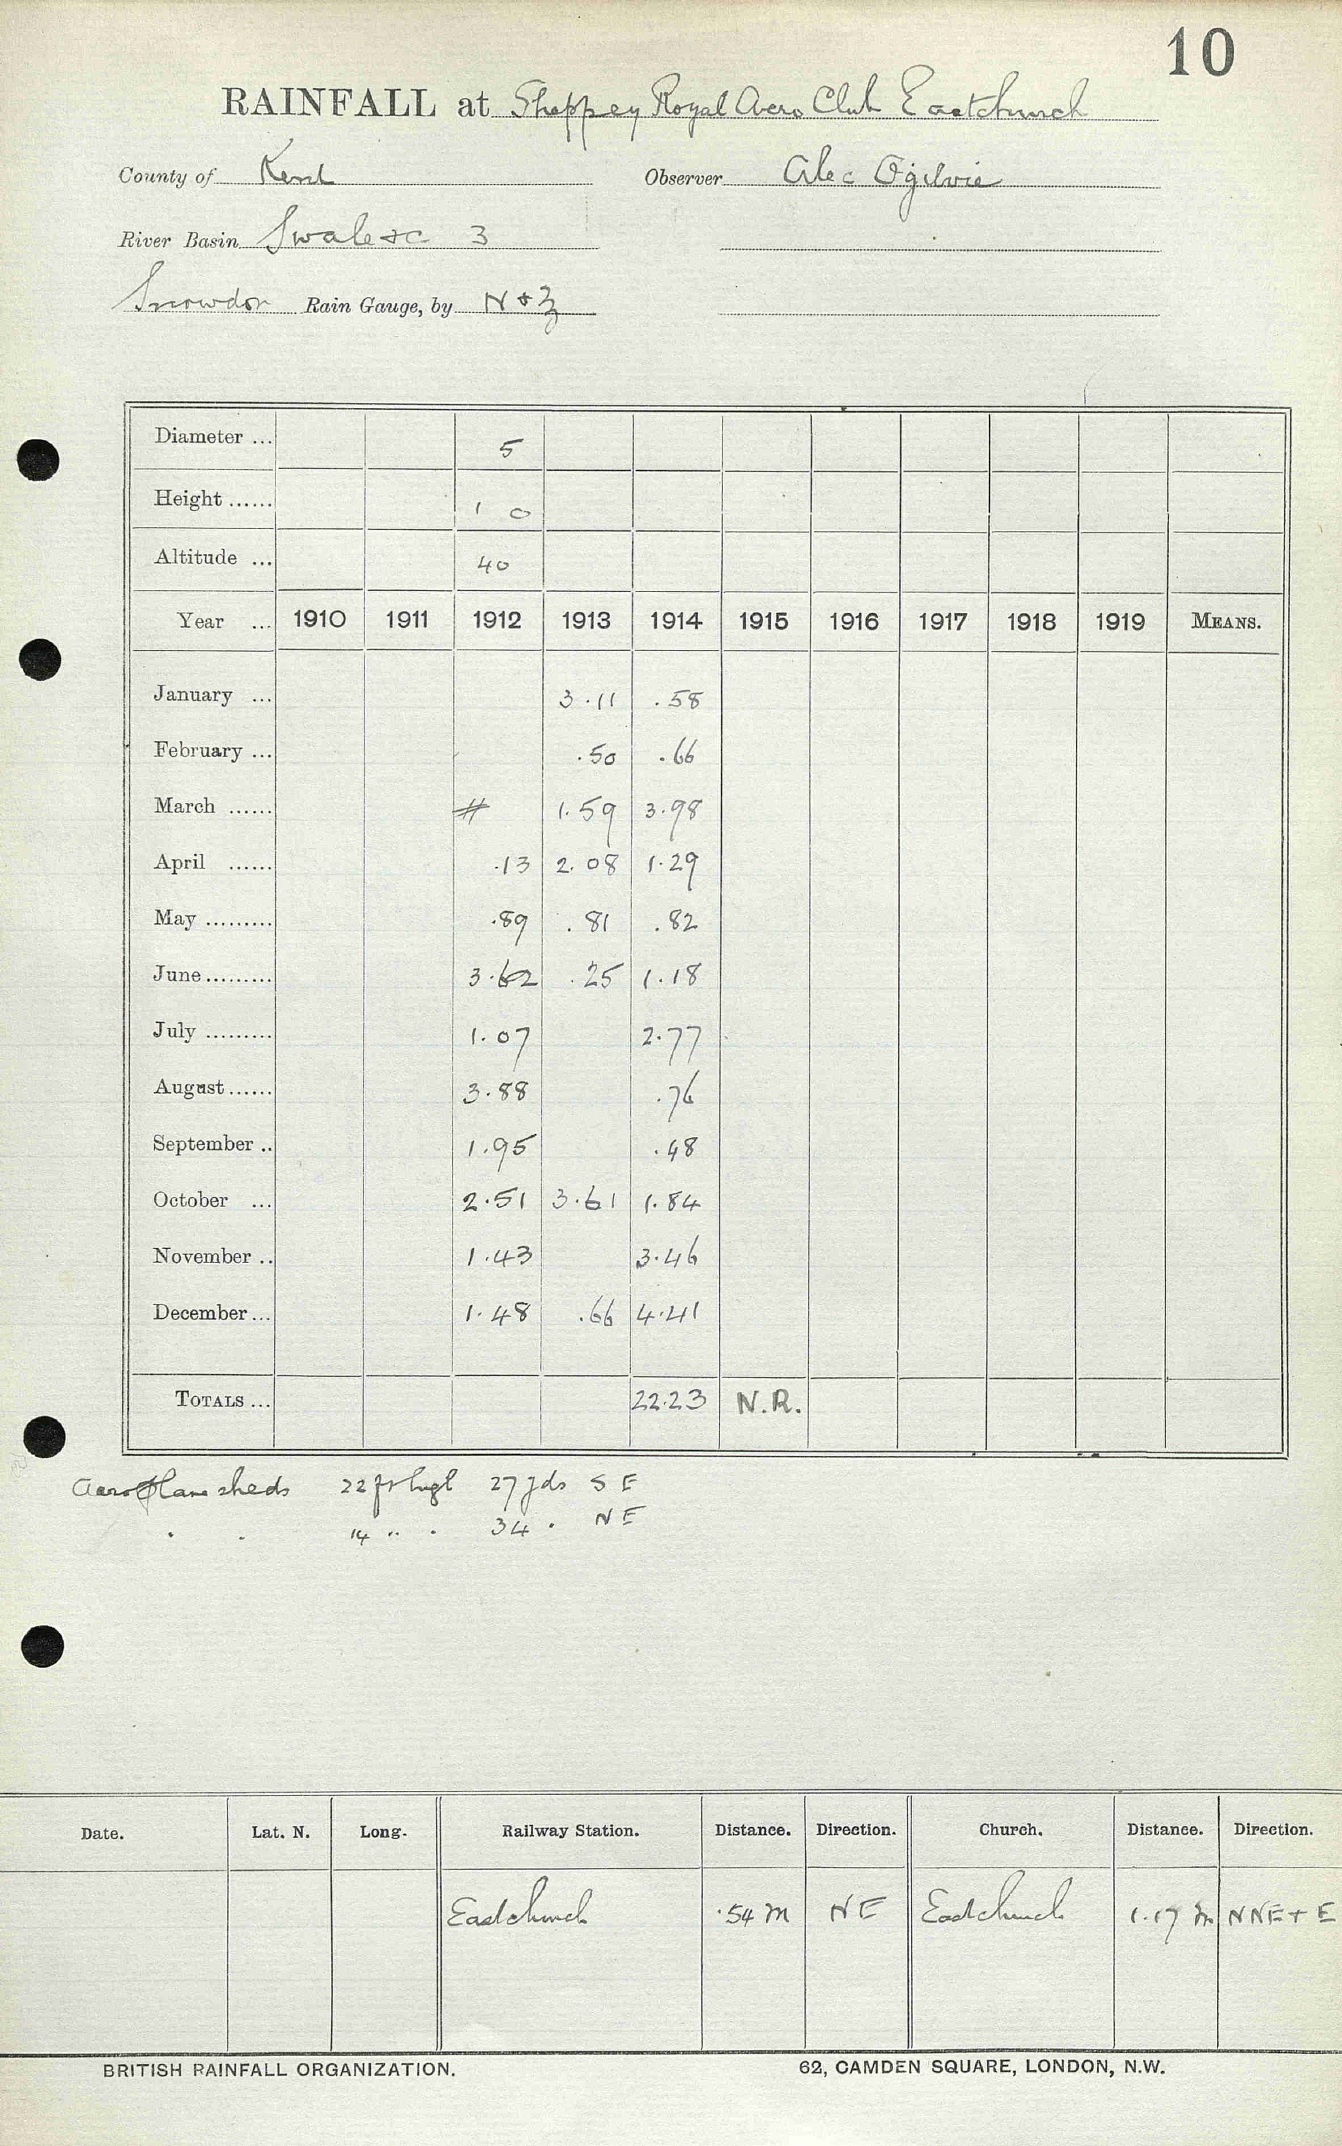 10
RAINFALL at Sheppey Royal Aero Club Eastchurch
County of Kent Observer Alec Ogilvie
River Basin Swale &c 3
Snowdon Rain Gauge, by N & Z
Diameter ... 5
Height ...... 1 0
Altitude ... 40
Year ... 1910 1911 1912 1913 1914 1915 1916 1917 1918 1919 MEANS.
January ... 3.11 .58
February ... .50 .66
March ...... # 1.59 3.98
April ...... .13 2.08 1.29
May ......... .89 .81 .82
June ......... 3.62 .25 1.18
July ......... 1.07 2.77
August ...... 3.88 .76
September .. 1.95 .48
October ... 2.51 3.61 1.84
November .. 1.43 3.46
December ... 1.48 .66 4.41
TOTALS ... 22.23 N.R.
Aeroplane sheds 22 ft high 27 yds S E
. . 14 " . 34 . N E
Date. Lat. N. Long. Railway Station. Distance. Direction. Church. Distance. Direction.
Eastchurch .54 m NE Eastchurch 1.17 m NNE + E
BRITISH RAINFALL ORGANIZATION. 62, CAMDEN SQUARE, LONDON, N.W.